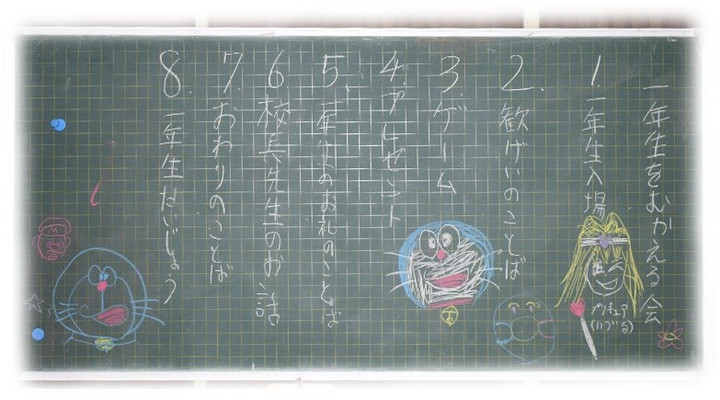 一年生をむかえる会
1. 一年生入場
2. 歓げいのことば
3. ゲーム
4. プレゼント
5. 一年生のお礼のことば
6. 校長先生のお話
7. おわりのことば
8. 一年生たいじょう
プリキュア